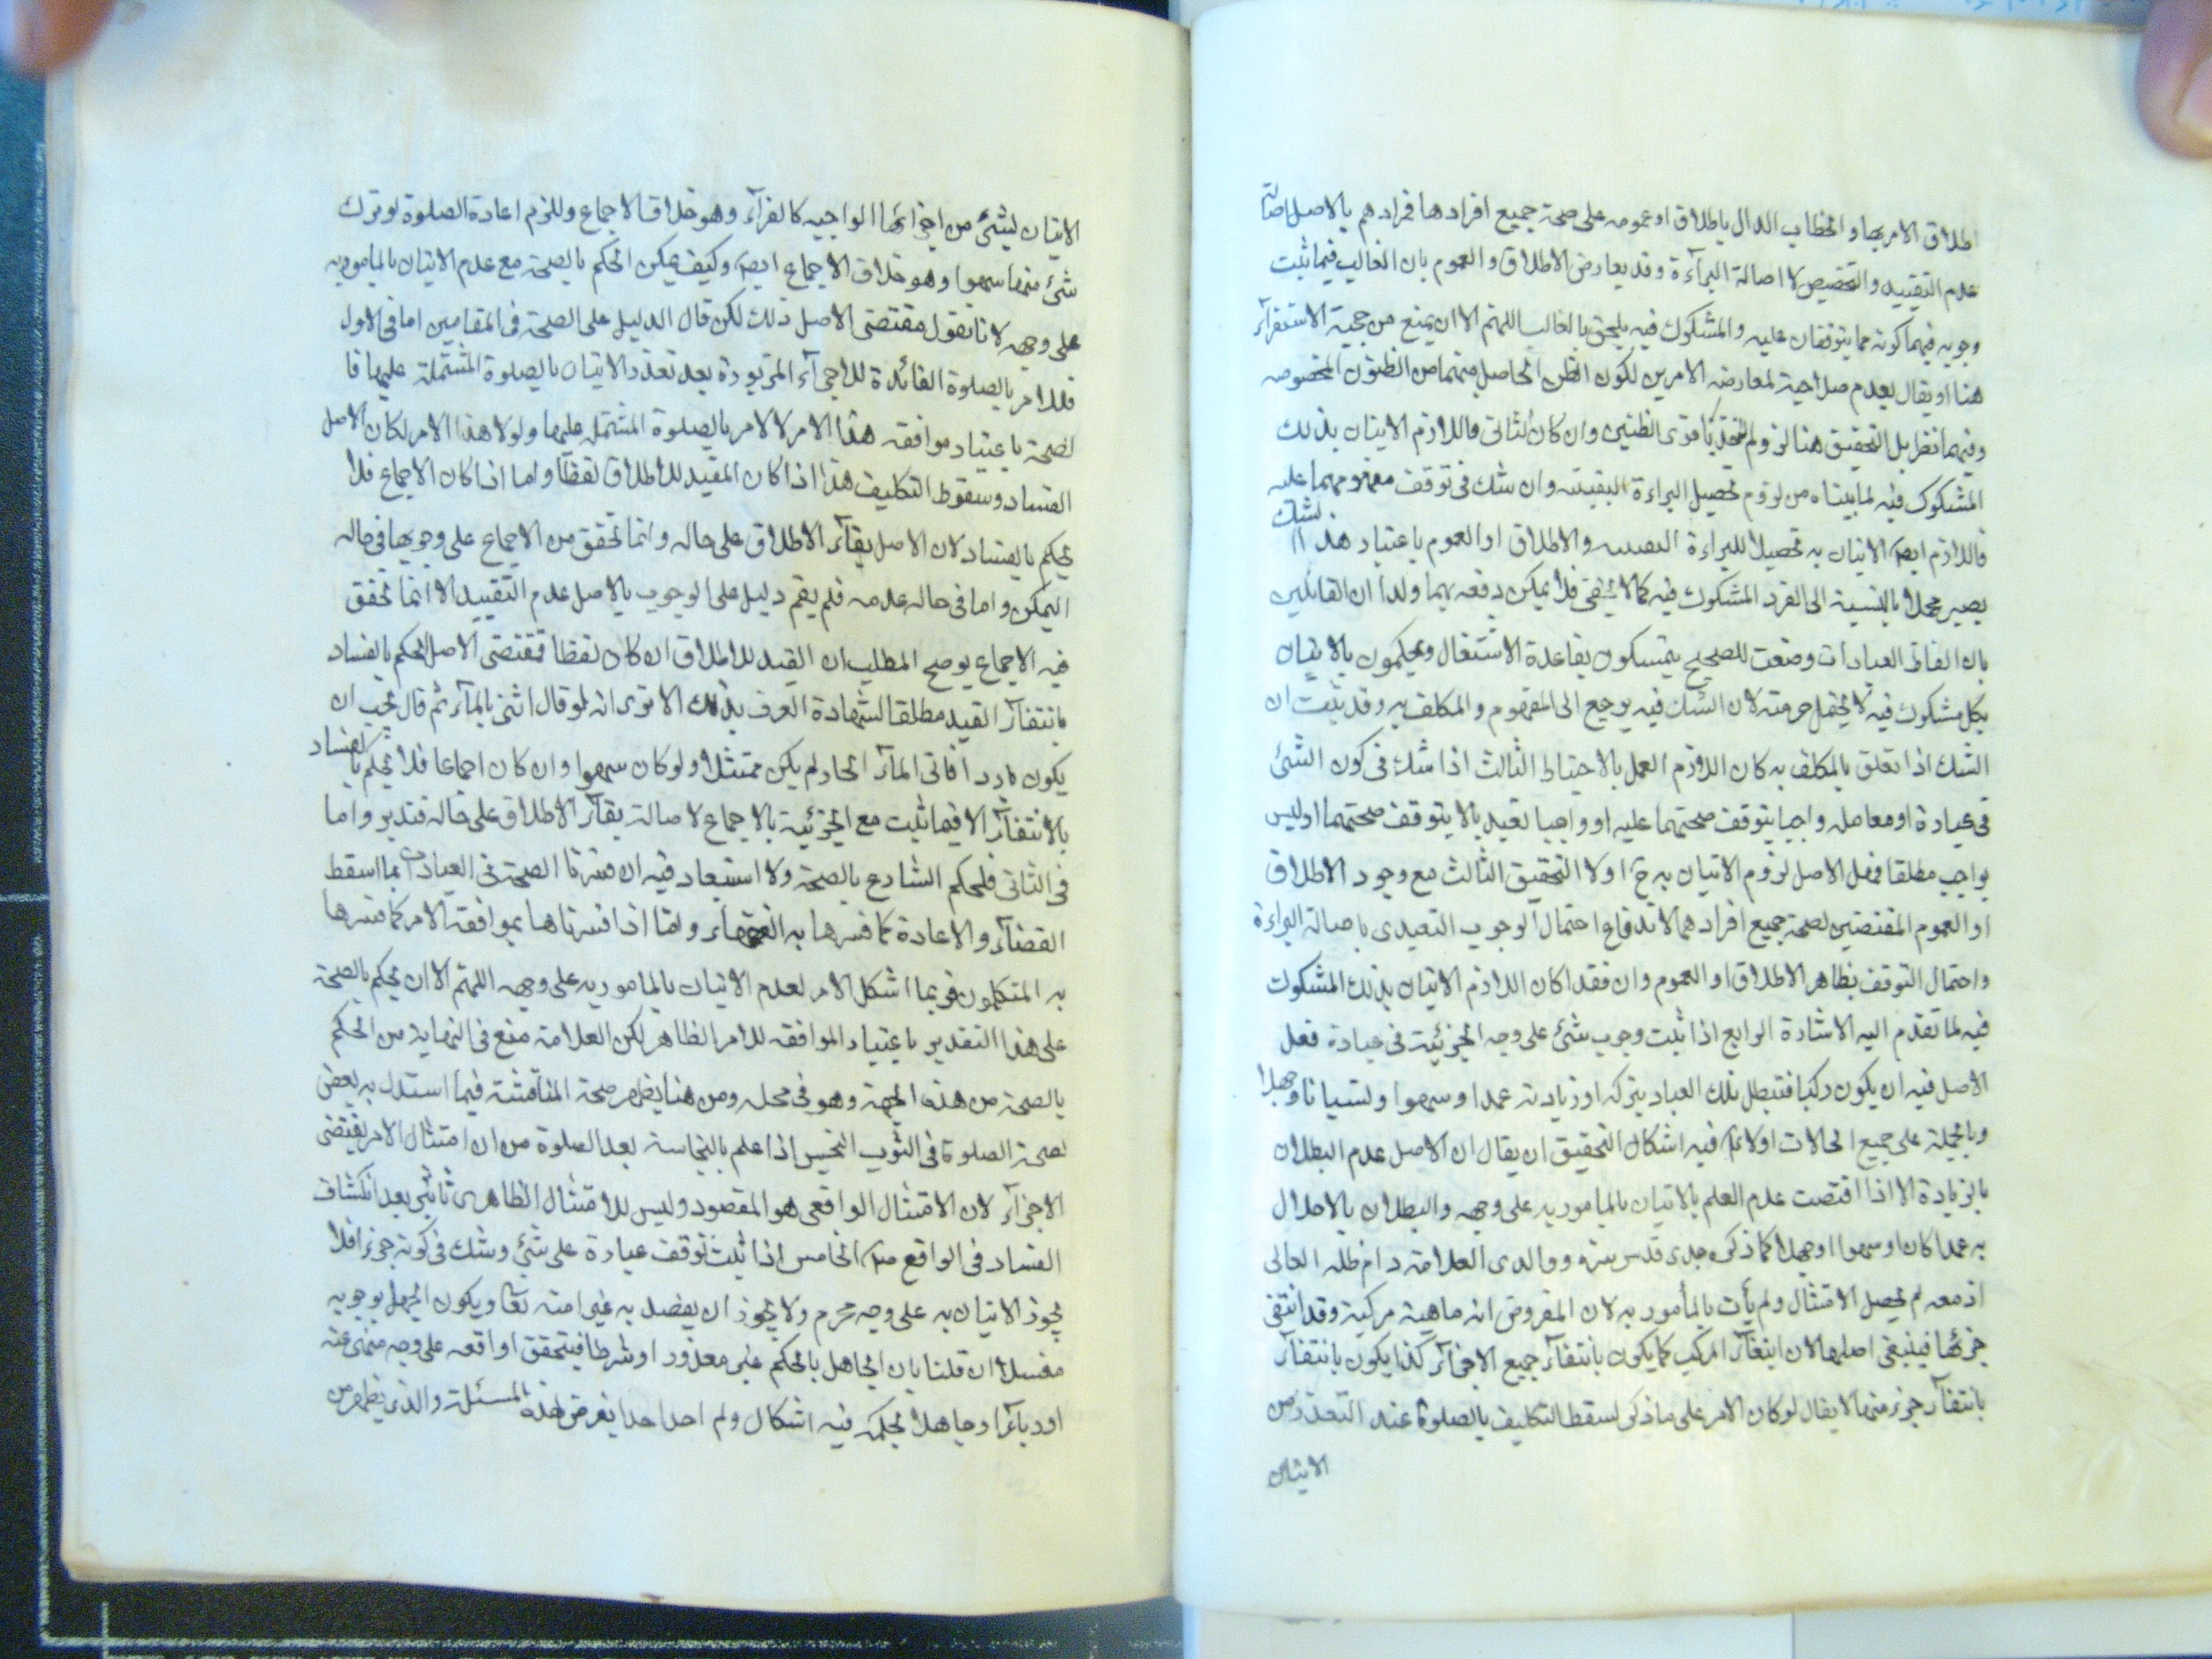 اطلاق الامر بها والخطاب الدال باطلاق او عمومه على صحة جميع افرادها فمرادهم بالاصل اصالة
عدم التقييد والتخصيص لا اصالة البرآءة وقد يعارض الاطلاق والعموم بان الغالب فيما ثبت
وجوبه فيهما كونه مما يتوقفان عليه والمشكوك فيه يلحق بالغالب اللهم الا ان يمنع من حجية الاستقرآء
هنا او يقال بعدم صلاحية لمعارضة الامرين لكون الظن الحاصل منهما من الظنون المخصوصه
وفيهما نظر بل التحقيق هنا لزوم الاخذ باقوى الظنين وان كان الثانى فاللازم الاتيان بذلك
المشكوك فيه لما بيناه من لزوم تحصيل البراءة اليقينه وان شك فى توقف مفهومهما عليه
فاللازم ايضا الاتيان به تحصيلا للبراءة اليقينيه والاطلاق او العموم باعتبار هذا الشك
يصير مجملا بالنسبة الى الفرد المشكوك فيه كما لا يخفى فلا يمكن دفعه بهما ولذا ان القائلين
بان الفاظ العبادات وضعت للصحيح يتمسكون بقاعدة الاشتغال ويحكمون بالاتيان
بكل مشكوك فيه لا يحتمل حرمته لان الشك فيه يرجع الى المفهوم والمكلف به وقد ثبت ان
الشك اذا تعلق بالمكلف به كان اللازم العمل بالاحتياط الثالث اذا شك فى كون الشئ
فى عبادة او معامله واجبا يتوقف صحتهما عليه او واجبا تعبديا لا يتوقف صحتهما او ليس
بواجب مطلقا فهل الاصل لزوم الاتيان به ح او لا التحقيق الثالث مع وجود الاطلاق
او العموم المقتضين لصحة جميع افرادهما لاندفاع احتمال الوجوب التعبدى باصالة البراءة
واحتمال التوقف بظاهر الاطلاق او العموم وان فقدا كان اللازم الاتيان بذلك المشكوك
فيه لما تقدم اليه الاشارة الرابع اذا ثبت وجوب شئ على وجه الجزئية فى عبادة فهل
الاصل فيه ان يكون ركنا فتبطل تلك العباد بتركه او زيادته عمدا وسهوا ونسيانا وجهلا
وبالجملة على جميع الحالات اولا فيه اشكال التحقيق ان يقال ان الاصل عدم البطلان
بالزيادة الا اذا اقتضت عدم العلم بالاتيان بالمامور به على وجهه والبطلان بالاخلال
به عمدا كان او سهوا او جهلا كما ذكره جدى قدس سره ووالدى العلامة دام ظله العالى
اذ معه لم يحصل الامتثال ولم يأت بالمأمور به لان المفروض انه ماهية مركبة وقد انتفى
جزئها فينبغى اصلها لان انتفآء المركب كما يكون بانتفآء جميع الاجزآء كذا يكون بانتفآء
بانتفآء جزء منها لا يقال لو كان الامر على ما ذكر لسقط التكليف بالصلوة عند التعذر من
الاتيان
الاتيان لشئ من اجزائها الواجبه كالقرآءة وهو خلاف الاجماع وللزم اعادة الصلوة لو ترك
شئ منها سهوا وهو خلاف الاجماع ايضا وكيف يمكن الحكم بالصحة مع عدم الاتيان بالمامور به
على وجهه لانا نقول مقتضى الاصل ذلك لكن قال الدليل على الصحة فى المقامين اما فى الاول
فللامر بالصلوة الفائدة للاجزآء المزبورة بعد تعذر الاتيان بالصلوة المشتملة عليها فا
لصحة باعتبار موافقه هذا الامر لا الامر بالصلوة المشتمله عليها ولولا هذا الامر لكان الاصل
الفساد وسقوط التكليف هذا اذا كان المقيد للاطلاق لفظا واما اذا كان الاجماع فلا
يحكم بالفساد لان الاصل بقآء الاطلاق على حاله وانما تحقق من الاجماع على وجوبها فى حاله
اليمكن واما فى حاله عدمه فلم يقم دليل على الوجوب بالاصل عدم التقييد الا انما تحقق
فيه الاجماع يوضح المطلب ان القيد للاطلاق ان كان لفظا فمقتضى الاصل الحكم بالفساد
بانتفآء القيد مطلقا لشهادة العرف بذلك الا ترى انه لو قال اتنى بالمآء ثم قال يجب ان
يكون باردا فاتى المآء الحار لم يكن ممتثلا ولو كان سهوا وان كان اجماعا فلا يحكم بالفساد
بالانتفآء الا فيما ثبت مع الجزئية بالاجماع لاصالة بقآء الاطلاق على حاله فتدبر واما
فى الثانى فلحكم الشارع بالصحة ولا استبعاد فيه ان فسرنا الصحة فى العبادات بما اسقط
القضآء والاعادة كما فسرها به الفقهآء واما اذا فسرناها بموافقة الامر كما فسرها
به المتكلمون فربما اشكل الامر لعدم الاتيان بالمامور به على وجهه اللهم الا ان يحكم بالصحة
على هذا التقدير باعتبار الموافقه للامر الظاهر لكن العلامة منع فى النهاية من الحكم
بالصحة من هذه الجهة وهو فى محله ومن هنا يظهر صحة المناقشة فيما استدل به بعض
لصحة الصلوة فى الثوب النجس اذا علم بالنجاسة بعد الصلوة من ان امتثال الامر يقتضى
الاجزآء لان الامتثال الواقعى هو المقصود وليس للامتثال الظاهرى تاثير بعد انكشاف
الفساد فى الواقع الخامس اذا ثبت توقف عبادة على شئ وشك فى كونه جزء افلا
يجوز الاتيان به على وجه محرم ولا يجوز ان يقصد به غير امتثاله تعالى ويكون الجهل بوجوبه
مفسدا ان قلنا بان الجاهل بالحكم غير معذور او شرطا فيتحقق او اقعه على وجه منهى عنه
او ريآء او جاهلا بحكمه فيه اشكال ولم اجد احدا يعرض لهذه المسئلة والذى يظهر من